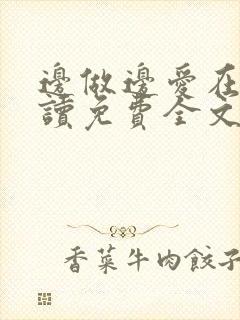 邊做邊愛在
讀免費全文
香菜牛肉餃子